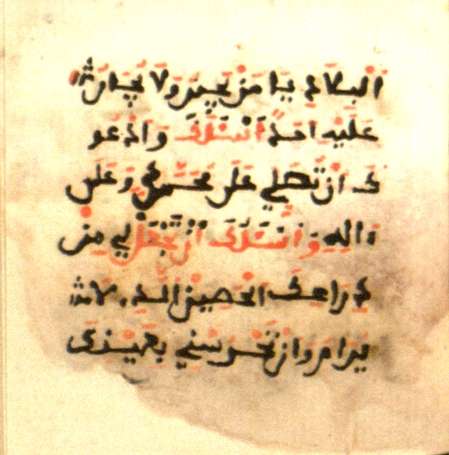 البلاد يا من يجير ولا يجار
عليه احد اسئلك وادعو
ك ان تصلي على محمد وعلى
اله واسئلك ان تجعل لي من
دراعك الحصين الذي لا
يرام وان تحرسني بعينك